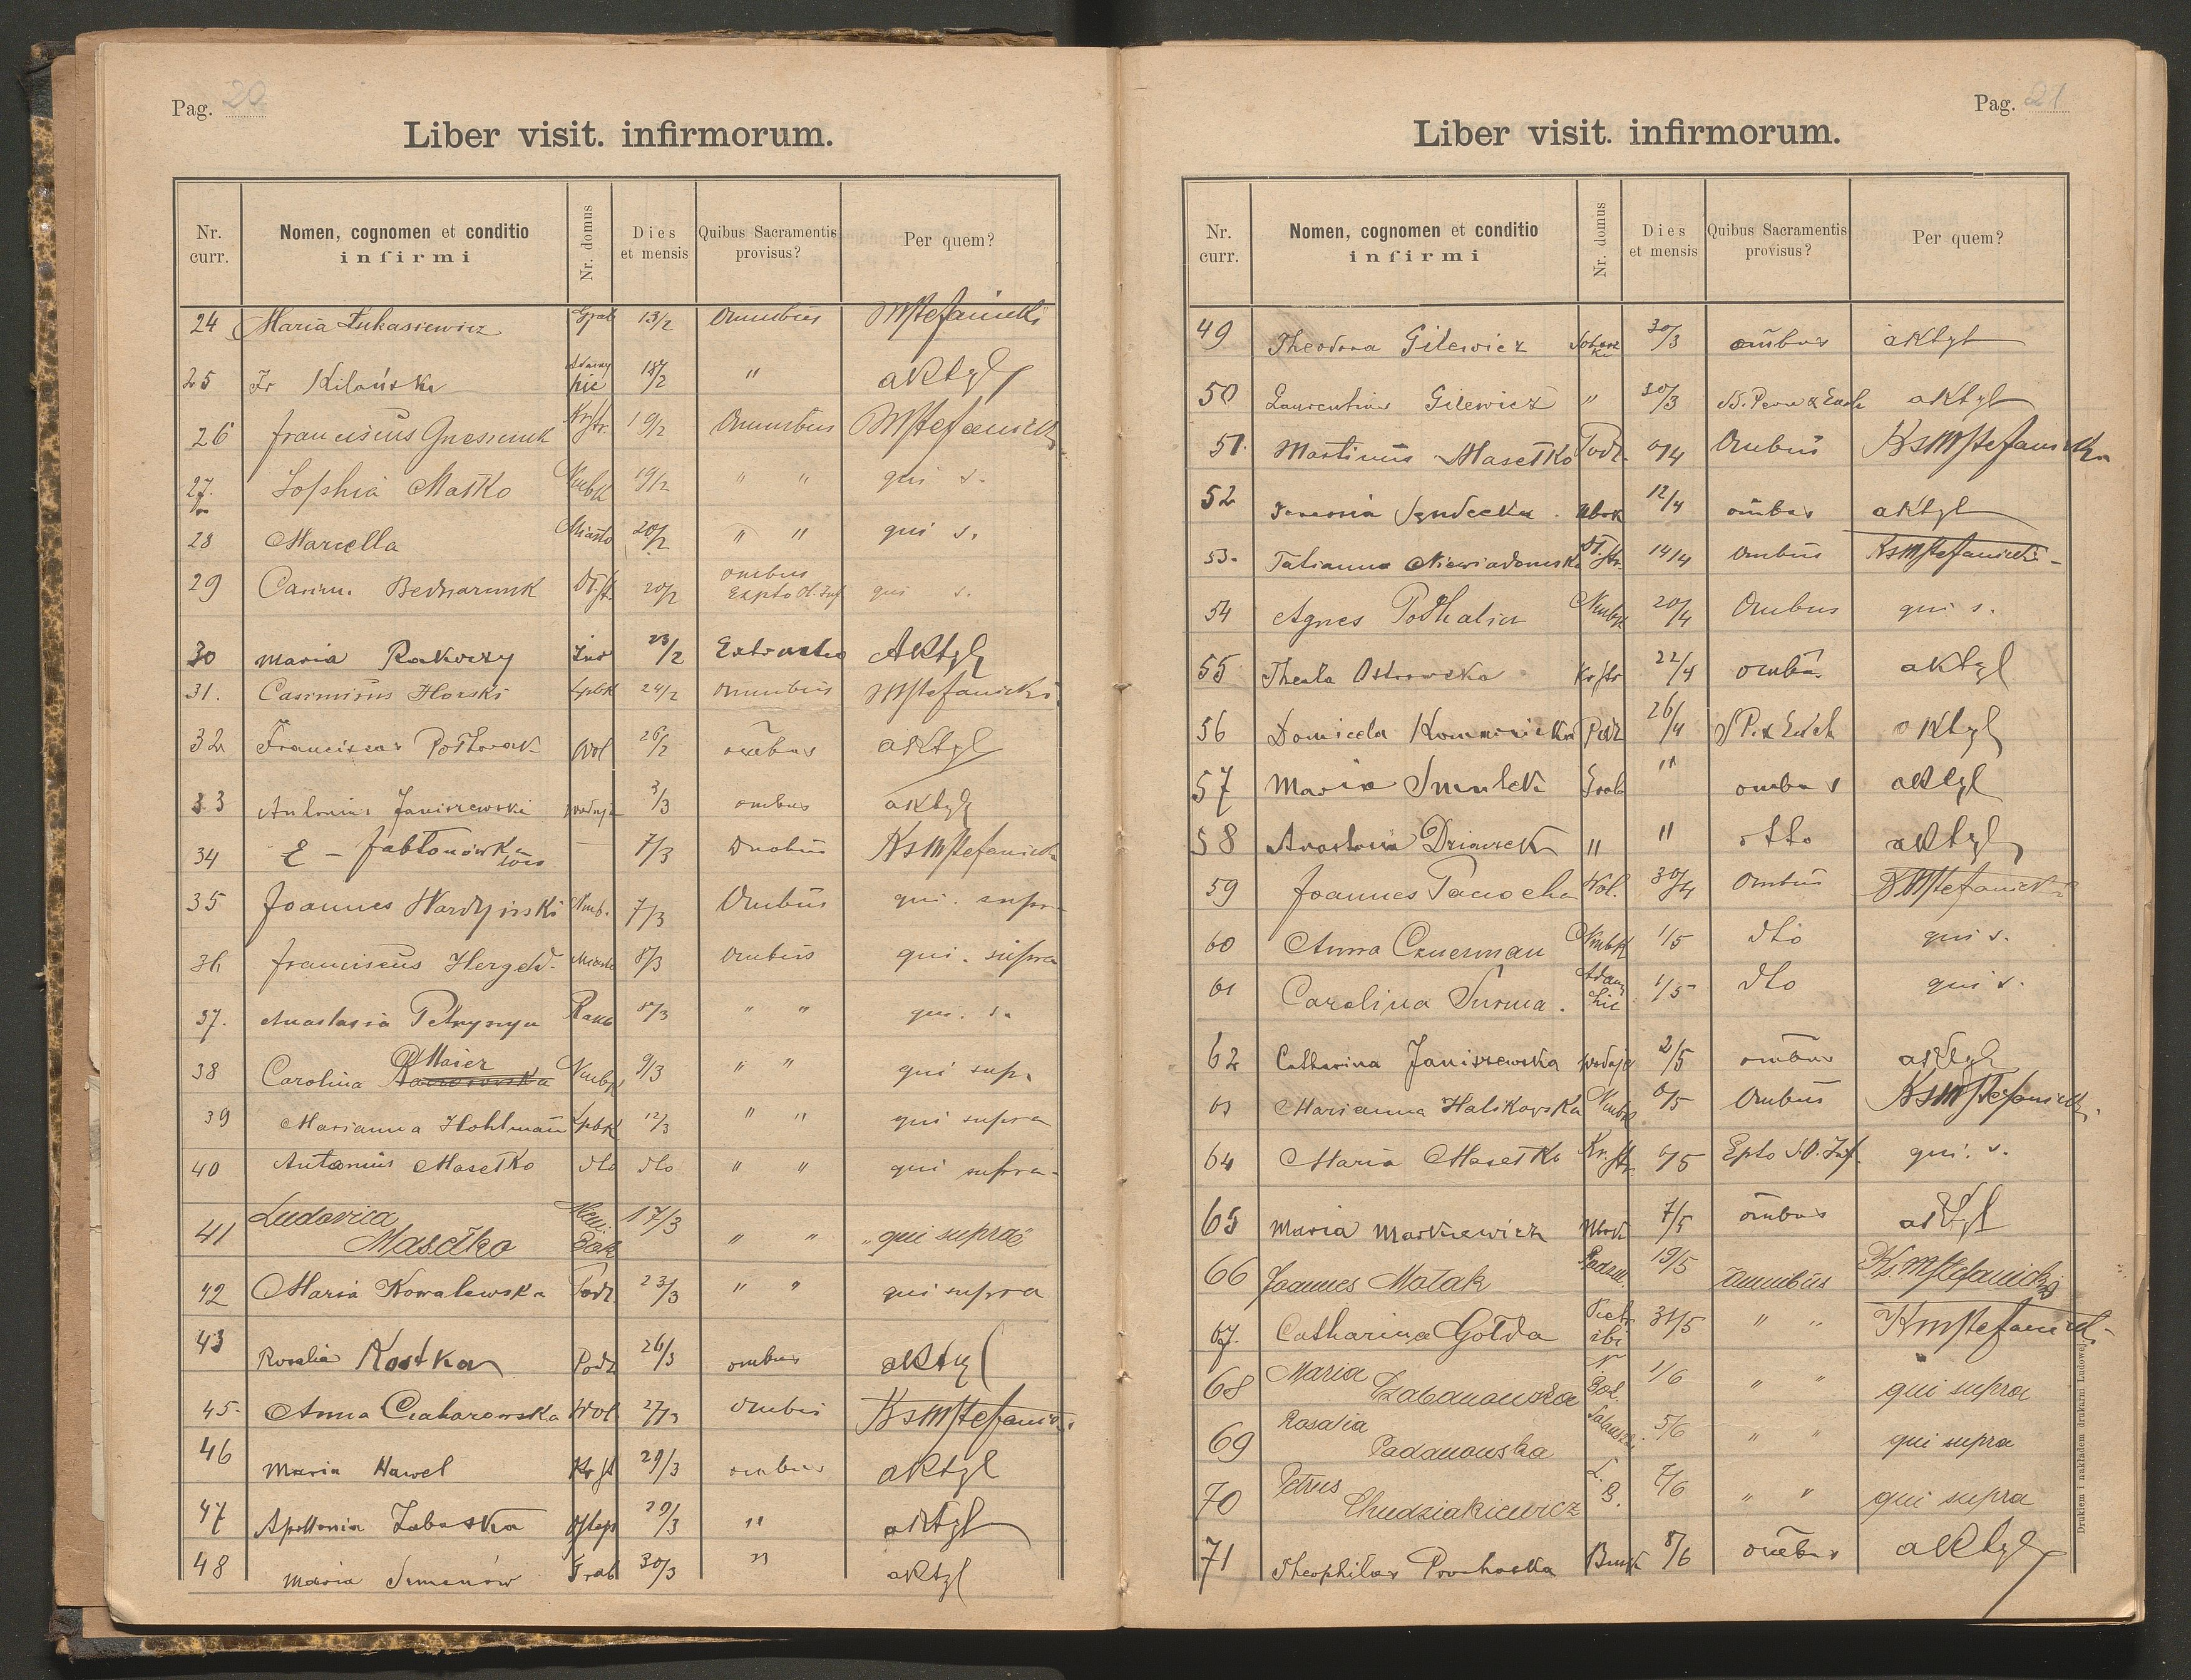 Pag. 20
Liber visit. infirmorum.
Nr. curr. Nomen, cognomen et conditio infirmi Nr. domus Dies et mensis Quibus Sacramentis provisus? Per quem?
24 Maria Łukasiewicz Grab 13/2 Omnibus MStefanicki
25 Fr Kilańska 18/2 " aKtzl
26 Franciscus Kr str. 19/2 Omnibus MStefanicki
27. Sophia Maśko Nmbk 19/2 " " qui s.
28 Marcella Miasto 20/2 " " qui s.
29 Casim. Bednarczuk Dł. st. 20/2 ombus Expto Ol. Inf qui s.
30 Maria Rakoczy 23/2 AKtzl
31. Casimirus Horski Łpbk 24/2 Omnibus MStefanicki
32 Franciscus Wol 26/2 ombus aKtzl
33 Antonius Janiszewski 3/3 ombus aKtzl
34 E – Jabłonówka — 7/3 Ombus KsMStefanicki
35 Joannes Wardyński Nmb. 7/3 Ombus qui. supra
36 Franciscus Hergeld Miasto 8/3 Ombus qui. supra
37. Anastasia Petryszyn Rako 8/3 " " qui. s.
38 Carolina Maier Nmbk 9/3 " " qui supr
39 Marianna Hohlman Łpbk 12/3 " " qui supra
40 Antonius Masełko dto dto " " qui supra
41 Ludovica Masełko 17/3 " " " qui supra
42 Maria Kowalewska Podz. 23/3 " " qui supra
43 Rosalia Kostka Podz 26/3 ombus aKtzl
45. Anna Czaharowska Wol. 27/3 Ombus KsMStefanicki
46 Maria Hawel Kr st 29/3 ombus aKtzl
47 Apollonia Zabaska Ostap 29/3 " aKtzl
48 Maria Semenów Grab 30/3 " aKtzl
Pag. 21
Liber visit. infirmorum.
Nr. curr. Nomen, cognomen et conditio infirmi Nr. domus Dies et mensis Quibus Sacramentis provisus? Per quem?
49 Theodora Gilewicz 30/3 ombus aKtzl
50 Laurentius Gilewicz " 30/3 aKtzl
51. Martinus Masełko Podz. 6/4 Ombus KsMStefanicki
52 12/4 ombus aKtzl
53. Tatianna Niewiadomska Dł. str. 14/4 Ombus KsMStefanicki
54 Agnes Podhalicz Nmbk 20/4 Ombus qui s.
55 Thecla Ostrowska Kr str 22/4 ombus aKtzl
56 Domicela Kommenicka Podz 26/4 aKtzl
57 Maria Smulek Grab " ombus aKtzl
58 Anastasia Dziaczek " " otto aKtzl
59 Joannes Panocha Wol. 30/4 Ombus MStefanicki
60 Anna Czuerman Nmbk 1/5 dto qui s.
61 Carolina Surma. 1/5 dto qui s.
62 Catharina Janiszewska 2/5 ombus aKtzl
63 Marianna Halikowska Nmbk 6/5 Ombus KsMStefanicki
64 Maria Masełko Kr. str. 6/5 Epto S.O. Inf. qui. s.
65 Maria Markiewicz Nbok 7/5 ombus aKtzl
66 Joannes Matak Podzm. 19/5 omnibus Ks. MStefanicki
67. Catharina Gołda 31/5 " " KMStefanicki
68 Maria Czabanowska N. Bok. 1/6 " " qui supra
69 Rosalia Padanowska 5/6 " " qui supra
70 Petrus Chudziakiewicz Ł. B. 7/6 " " qui supra
71 Theophilus Prochaska Busk 8/6 ombus aKtzl
Drukiem i nakładem drukarni Ludowej